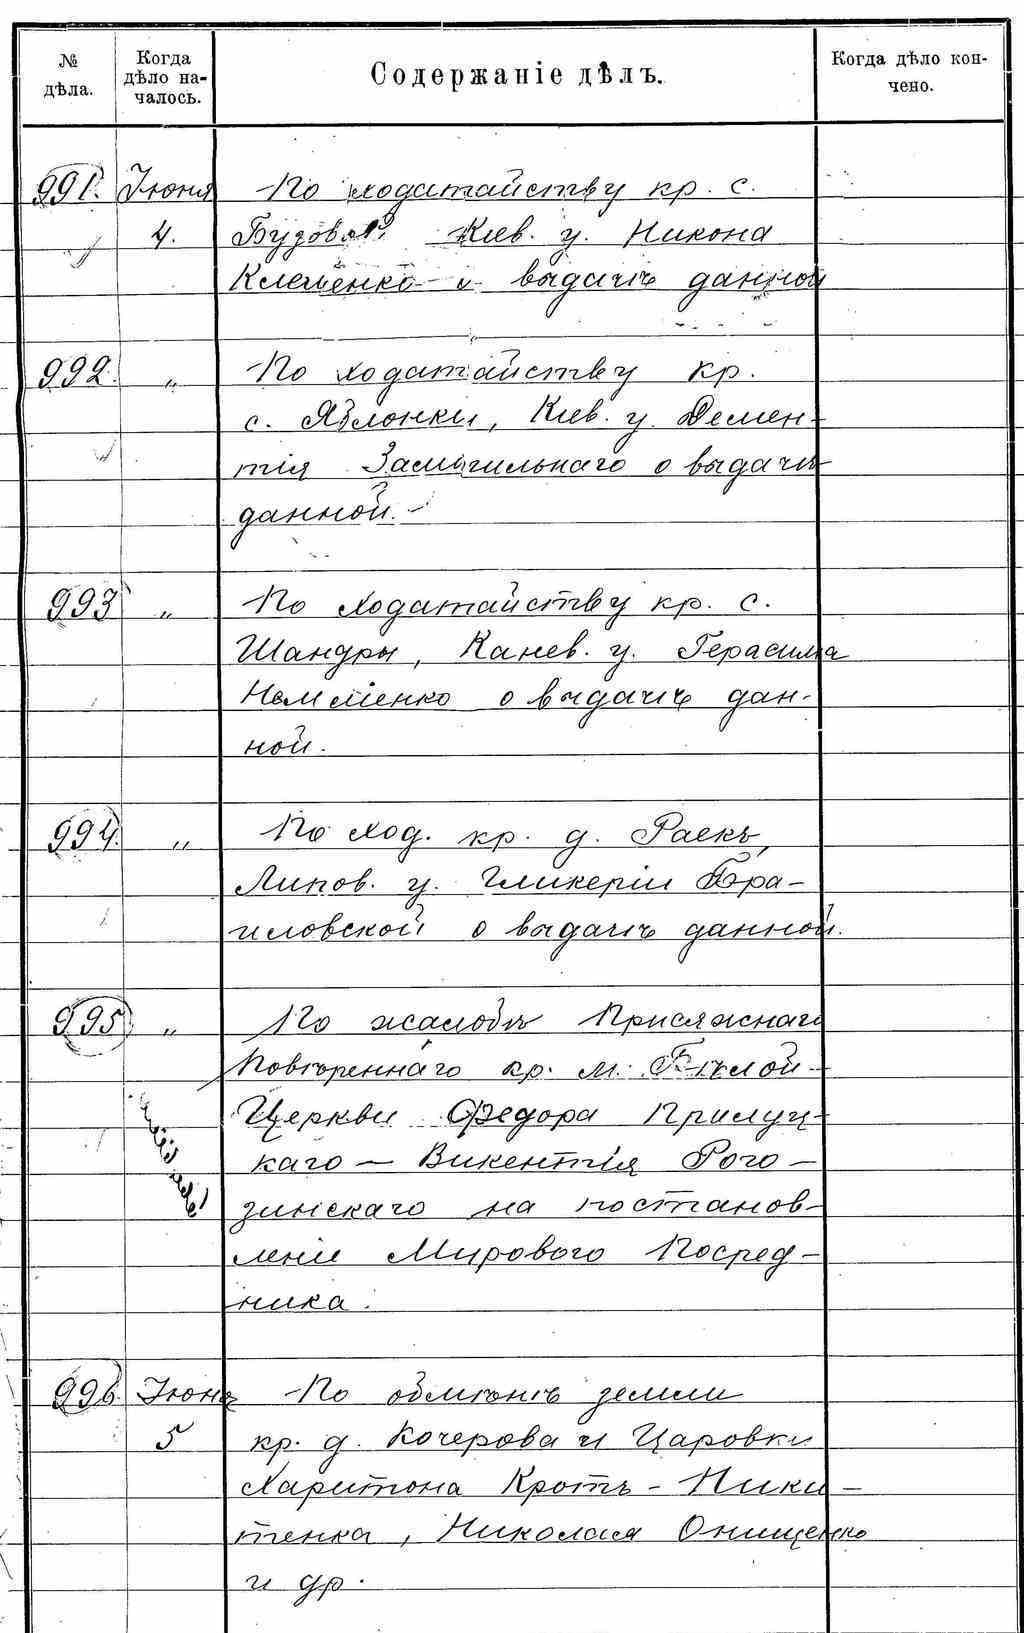 № дѣла.
Когда дѣло началось.
Содержаніе дѣлъ.
Когда дѣло кончено.
991. Іюня По ходатайству кр. с.
4. Кіев. у. Никона
Клеменко о выдачѣ данной
992. „ По ходатайству кр.
с. Яблонки, Кіев. у. Демен-
тія Замогильнаго о выдачѣ
данной.
993 „ По ходатайству кр. с.
Шандры, Канев. у. Герасима
о выдачѣ дан-
ной.
994. „ По ход. кр. д. Раекъ,
Липов. у. Гликеріи Бра-
иловской о выдачѣ данной.
995 „ По жалобѣ Присяжнаго
Повѣреннаго кр. м. Бѣлой-
Церкви Федора Прилуц-
каго — Викентія Рого-
зинскаго на постанов-
леніе Мирового Посред-
ника.
996. Іюня По обмѣнѣ земли
5 кр. д. Кочерова и Царовки
Харитона Кротъ - Ники-
тенка, Николая Онищенко
и др.